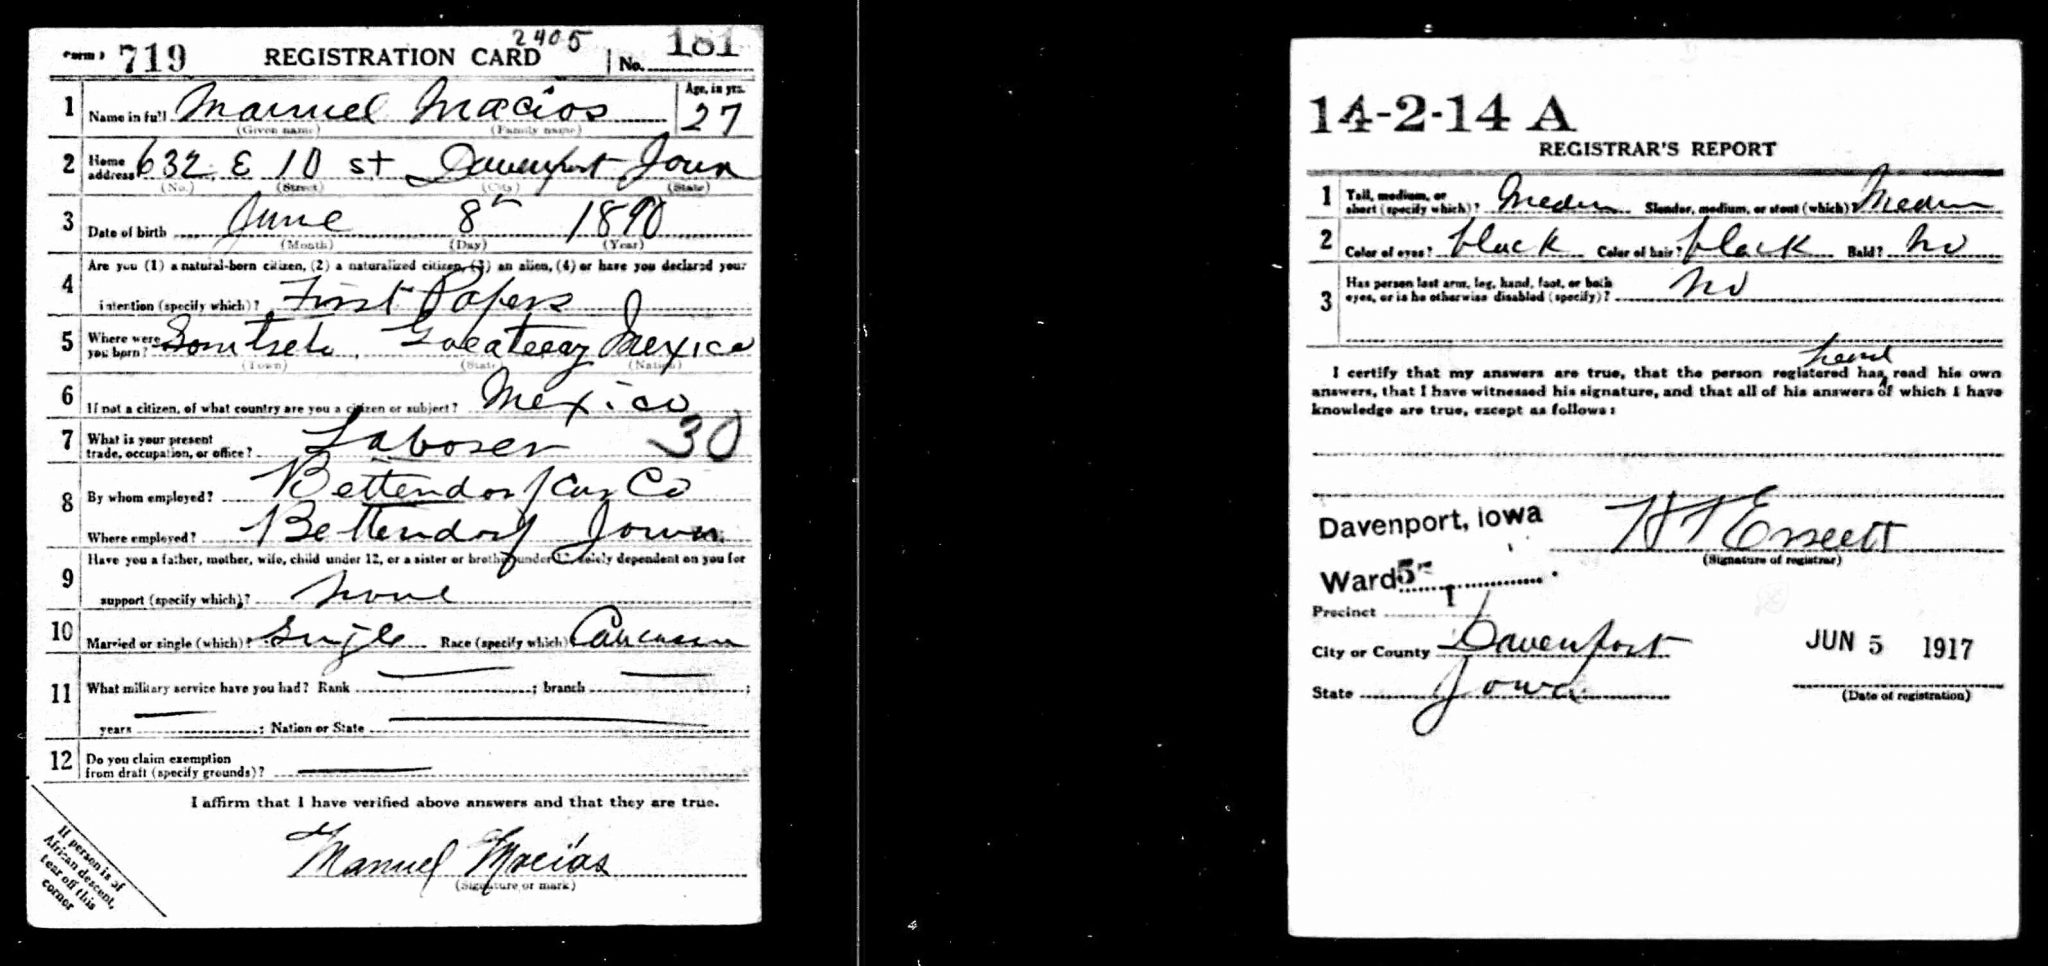 Form 1 719 REGISTRATION CARD 2405 No. 181
1 Name in full Manuel Macías Age, in yrs. 27
(Given name) (Family name)
2 Home address 632 E 10 st Davenport Iowa
(No.) (Street) (City) (State)
3 Date of birth June 8th 1890
(Month) (Day) (Year)
4 Are you (1) a natural-born citizen, (2) a naturalized citizen, (3) an alien, (4) or have you declared your
intention (specify which)? First Papers
5 Where were you born? Mexico
(Town) (State) (Nation)
6 If not a citizen, of what country are you a citizen or subject? Mexico
7 What is your present
trade, occupation, or office? Laborer 30
8 By whom employed? Bettendorf Car Co
Where employed? Bettendorf Iowa
9 Have you a father, mother, wife, child under 12, or a sister or brother under 12, solely dependent on you for
support (specify which)? none
10 Married or single (which)? Single Race (specify which)? Caucasian
11 What military service have you had? Rank ; branch ;
years ; Nation or State
12 Do you claim exemption
from draft (specify grounds)?
I affirm that I have verified above answers and that they are true.
Manuel Macías
(Signature or mark)
If person is of
African descent,
tear off this
corner
14-2-14 A
REGISTRAR'S REPORT
1 Tall, medium, or
short (specify which)? Medium Slender, medium, or stout (which)? Medium
2 Color of eyes? black Color of hair? black Bald? No
3 Has person lost arm, leg, hand, foot, or both
eyes, or is he otherwise disabled (specify)? No
heard
I certify that my answers are true, that the person registered has read his own
answers, that I have witnessed his signature, and that all of his answers of which I have
knowledge are true, except as follows:
Davenport, Iowa
(Signature of registrar)
Ward 5
Precinct 1
City or County Davenport JUN 5 1917
State Iowa (Date of registration)